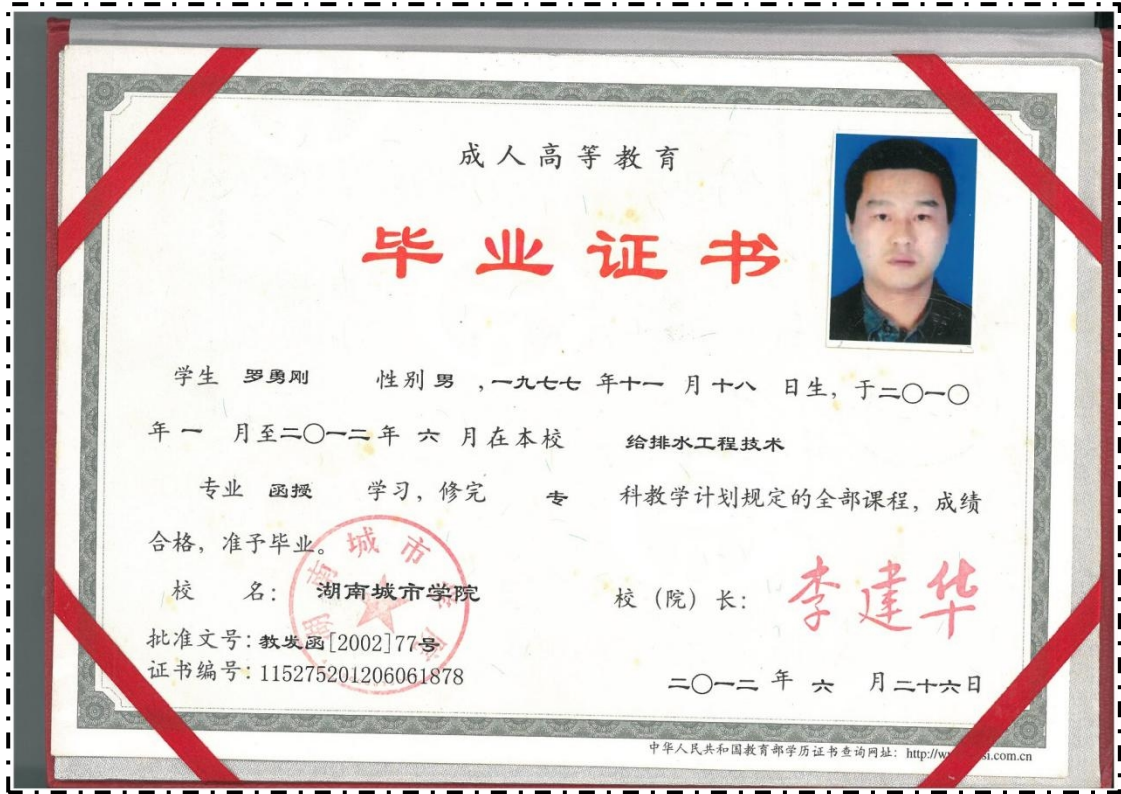 成人高等教育
毕业证书
学生 罗勇刚 性别 男 ,一九七七 年十一 月 十八 日生, 于二〇一〇
年 一 月至二〇一二年 六 月在本校 给排水工程技术
专业 函授 学习, 修完 专 科教学计划规定的全部课程, 成绩
合格, 准予毕业。
校 名: 湖南城市学院
校 (院) 长: 李建华
批准文号: 教发函[2002]77号
证书编号: 115275201206061878
二〇一二 年 六 月二十六日
湖南城市学院
中华人民共和国教育部学历证书查询网址: http://w si.com.cn